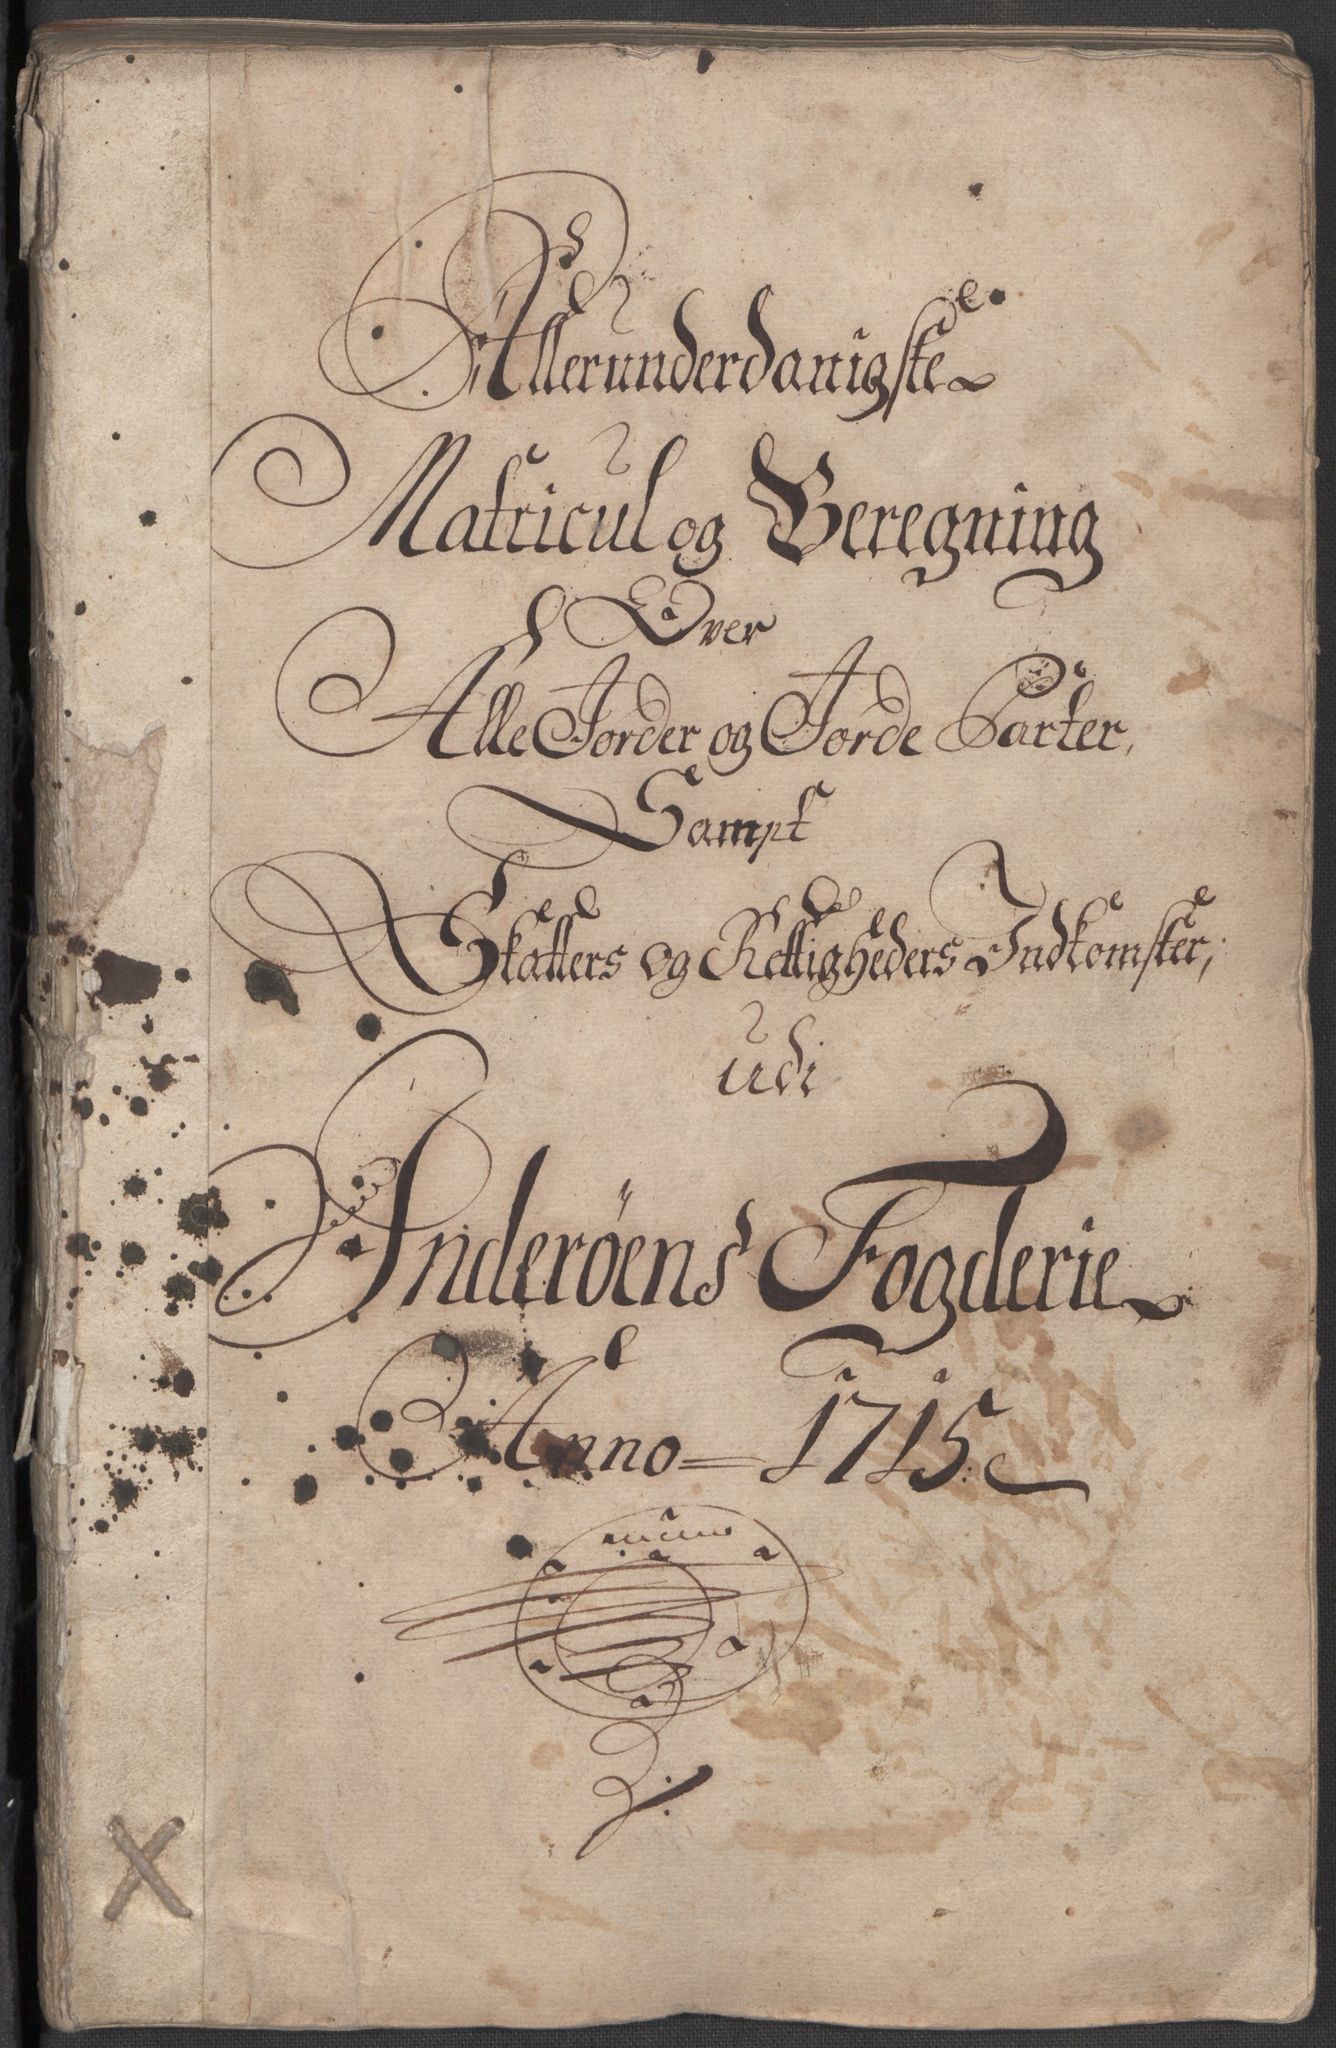 Allerunderdanigste
Matricul og Beregning
Over
Alle Jorder og Jorde Parter,
Sampt
Skatters og Rettigheders Indkomster,
udi
Inderöens Fogderie
Anno 1715